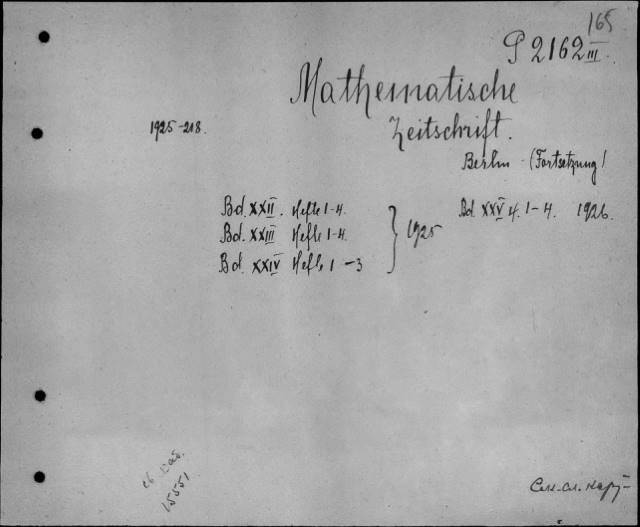 165
P 2162 III.
Mathematische
Zeitschrift.
1925-218.
Berlin (Fortsetzung)
Bd. XXII. Hefte 1-4.
Bd. XXIII Hefte 1-4.
Bd. XXIV Hefte 1-3
1925
Bd. XXV H. 1-4. 1926.
15551